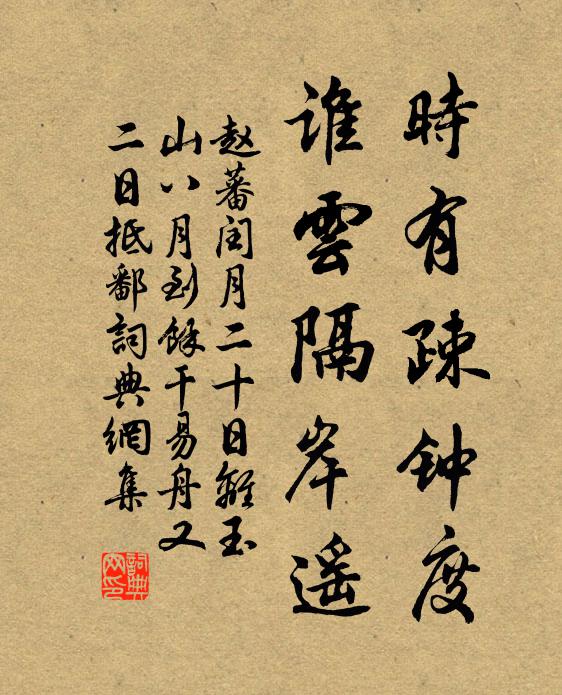 時有疎钟度
誰雲隔岸遥
赵蕃闰月二十日離玉
山八月到餘干易舟又
二日抵鄱詞典網集
詞典
网印